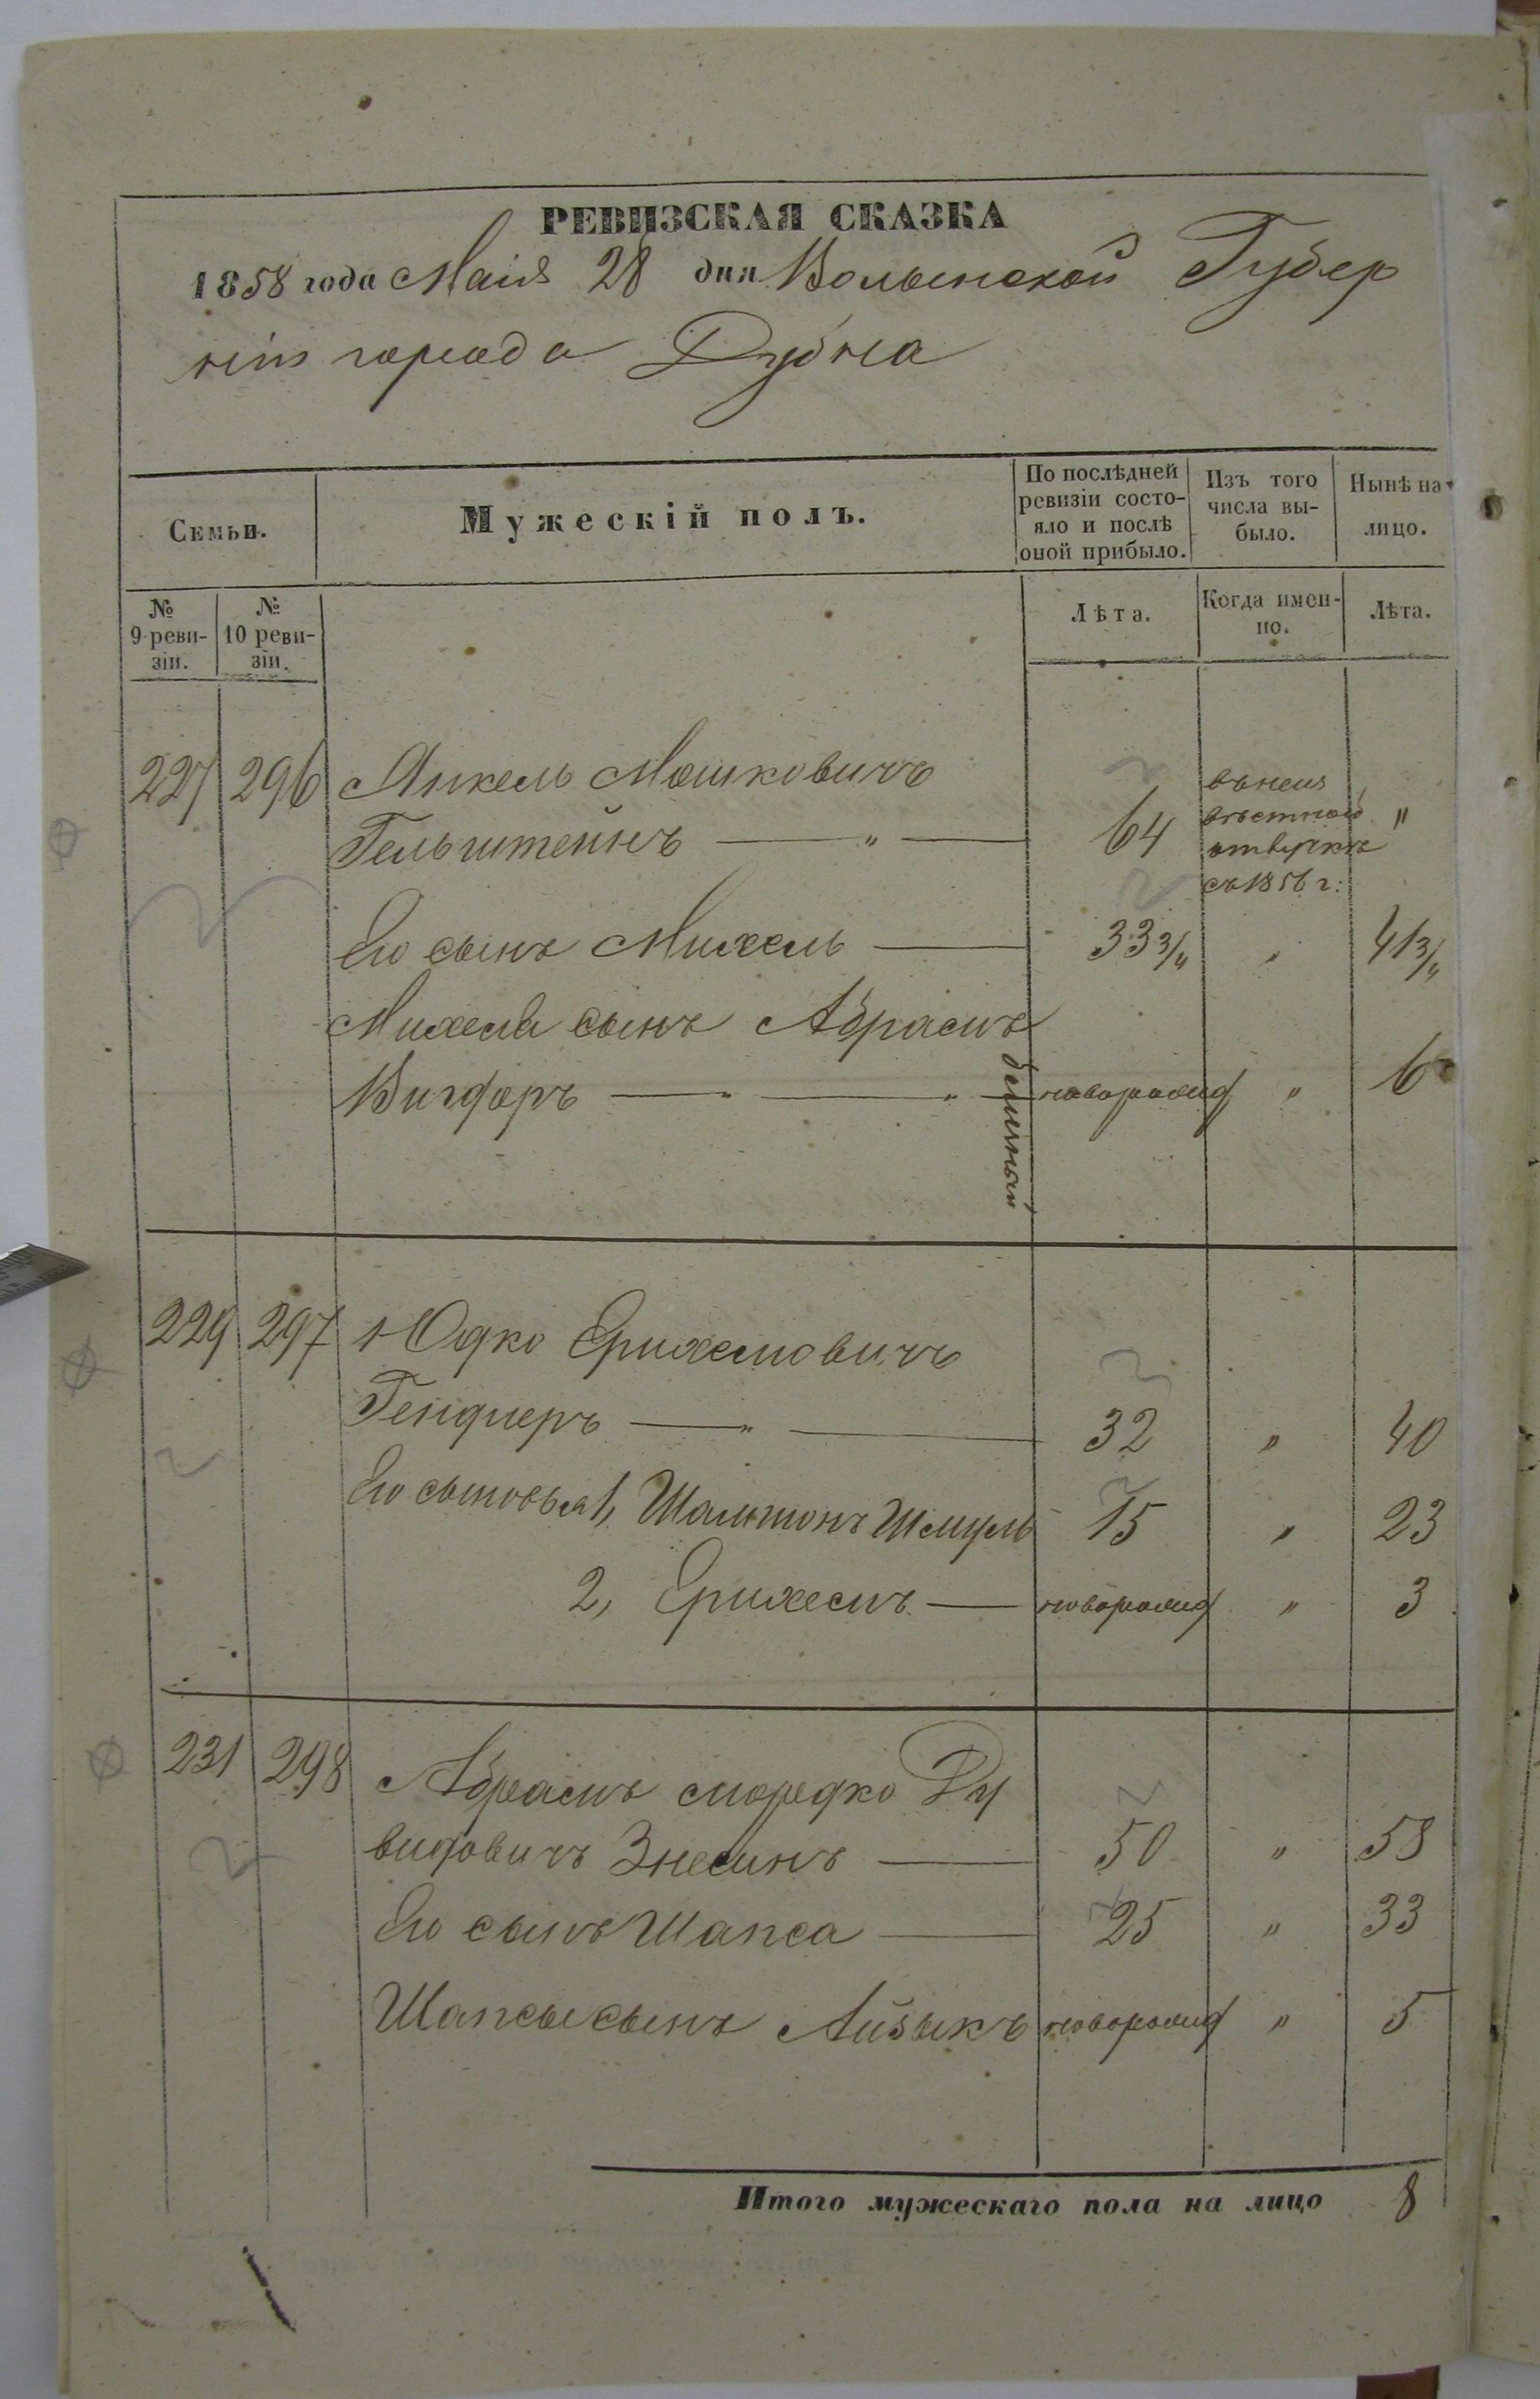 РЕВИЗСКАЯ СКАЗКА
1858 года Маія 28 дня Волынской Губер
ніи города Дубна
Семьи.
Мужескій полъ.
По послѣдней ревизіи состо-
яло и послѣ оной прибыло.
Изъ того числа вы-
было.
Нынѣ на
лицо.
№ 9 реви-
зіи.
№ 10 реви-
зіи.
Лѣта.
Когда имен-
но.
Лѣта.
227 296 Янкель Мошковичъ
Гельштейнъ — " — 64 въ неиз
вѣстной
отлучкѣ
съ 1856 г: "
Его сынъ Михель — 33 3/4 " 41 3/4
Михеля сынъ Абрамъ
Вигдоръ — " — " — новорожд " 6
229 297 Юдко Ерихемовичъ
Гендлеръ — " — 32 " 40
Его сыновья 1, Шамшонъ Шмуль 15 " 23
2, Ерихемъ — новорожд " 3
231 298 Абрамъ Мордко Ду
видовичъ Знесинъ — 50 " 58
Его сынъ Шапса — 25 " 33
Шапсы сынъ Айзыкъ новорожд " 5
Итого мужескаго пола на лицо 8